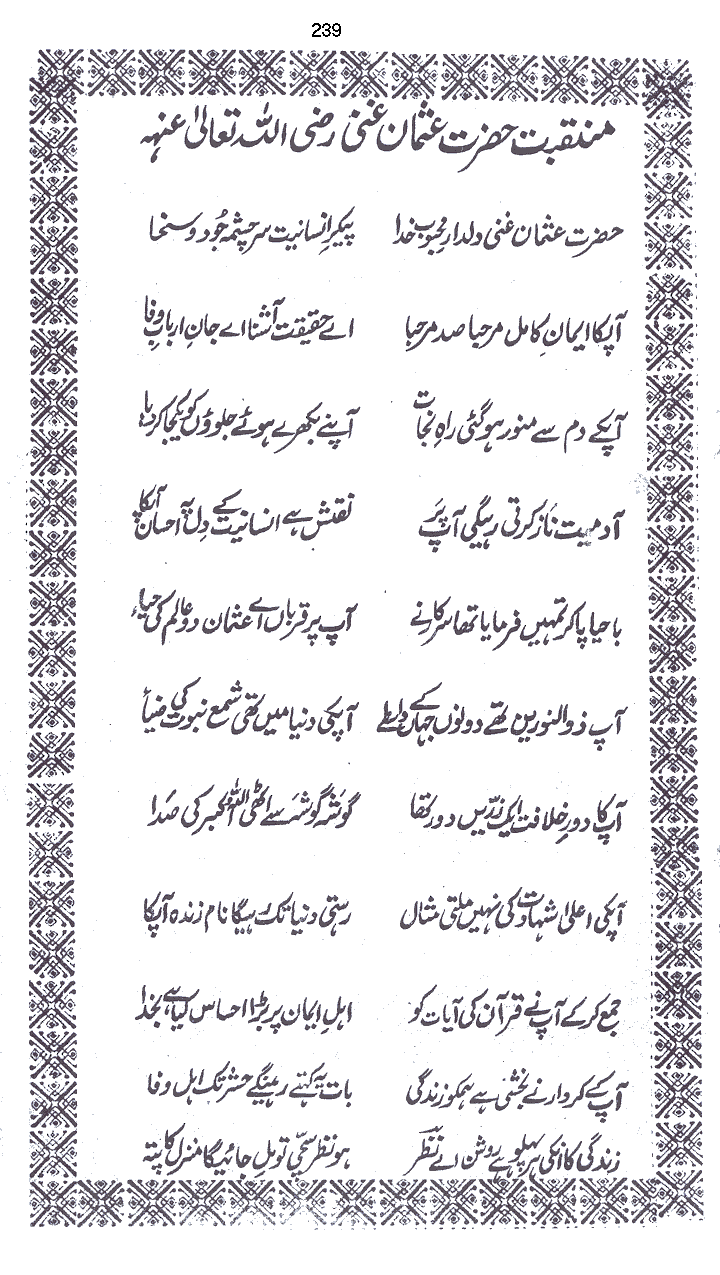 239
منقبت حضرت عثمان غنی رضی اللہ تعالیٰ عنہہ
حضرت عثمان غنی دلدارِ محبوبِ خدا پیکرِ انسانیت سرچشمہ جُود و سخا
آپکا ایمانِ کامل مرحبا صد مرحبا اے حقیقت آشنا اے جانِ اربابِ وفا
آپکے دم سے منور ہوگئی راہِ نجات آپنے بکھرے ہوئے جلوؤں کو یکجا کر دیا
آدمیت ناز کرتی رہیگی آپ پَر نقش ہے انسانیت کے دِل پہ احسان آپکا
باحیا پاکر تمہیں فرمایا تھا سرکار نے آپ پر قرباں اے عثمان دو عالم کی حیاء
آپ ذوالنورین تھے دونوں جہاں کے واسطے آپکی دنیا میں تھی شمع نبوت کی ضیأ
آپ کا دورِ خلافت ایک زرّیں دور تھا گوشہ گوشہ سے اٹھی اللہُ اکبر کی صَدا
آپکی اعلیٰ شہادت کی نہیں ملتی مثال رہتی دنیا تک رہیگا نام زندہ آپکا
جمع کرکے آپ نے قرآن کی آیات کو اہلِ ایمان پر بڑا احساس کیا ہے بخدا
آپ کے کردار نے بخشی ہے ہمکو زندگی بات یہ کہتے رہینگے حشر تک اہل وفا
زندگی کا انکی ہر پہلو ہے روشن اے نظر ہو نظر سچّی تو مِل جائیگا منزل کا پتہ